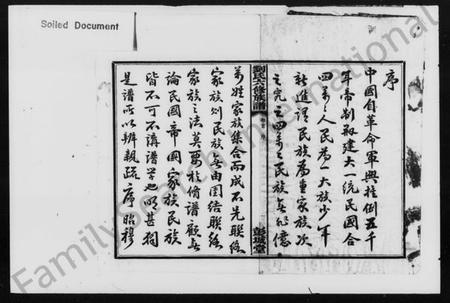 Soiled Document
序
中國自革命軍興推倒五千
年帝制改建大一統民國合
四萬々人民為一大族少年
新進謂民族為重家族次
之究之四萬々民族無非億
劉氏六修族譜
彭城堂
萬姓家族集合而成不先聯絡
家族則民族無由團結聯絡
家族之法莫善於脩譜顧無
論民國帝國家族民族
皆不可不講譜學也明甚獨
是譜所以辨親疏序昭穆
FamilySearch International